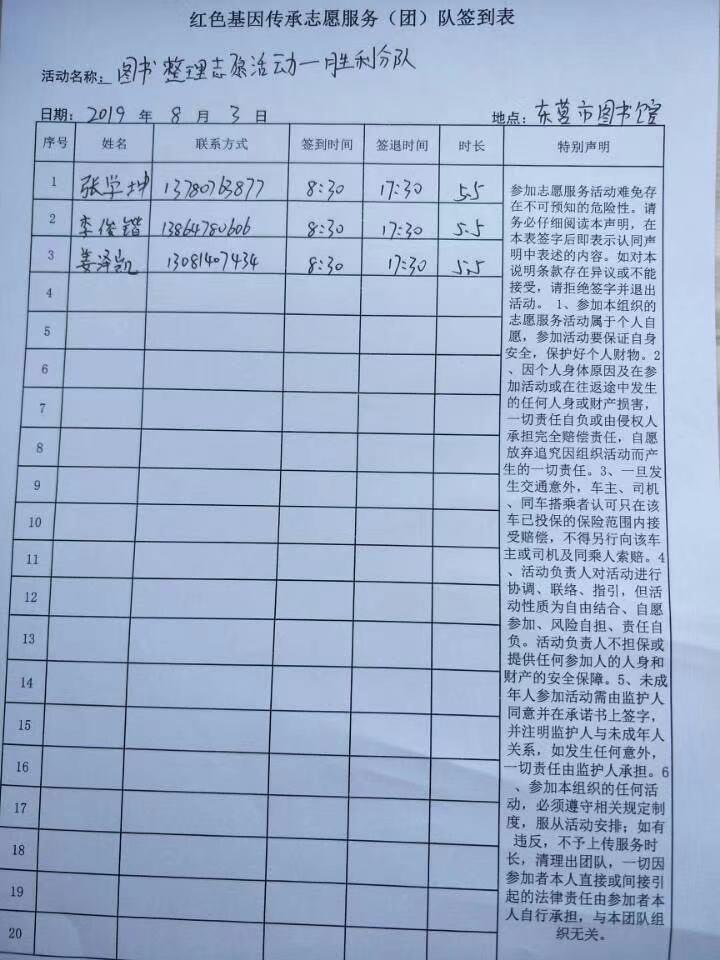 红色基因传承志愿服务（团）队签到表
活动名称：图书整理志愿活动一胜利分队
日期：2019 年 8 月 3 日 地点：东营市图书馆
序号 姓名 联系方式 签到时间 签退时间 时长 特别声明
1 张学坤 13780763877 8:30 17:30 5.5
2 李俊锴 13864780606 8:30 17:30 5.5
3 姜泽凯 13081407434 8:30 17:30 5.5
4
5
6
7
8
9
10
11
12
13
14
15
16
17
18
19
20
参加志愿服务活动难免存
在不可预知的危险性。请
务必仔细阅读本声明，在
本表签字后即表示认同声
明中表述的内容。如对本
说明条款存在异议或不能
接受，请拒绝签字并退出
活动。 1、参加本组织的
志愿服务活动属于个人自
愿，参加活动要保证自身
安全，保护好个人财物。2
、因个人身体原因及在参
加活动或在往返途中发生
的任何人身或财产损害，
一切责任自负或由侵权人
承担完全赔偿责任，自愿
放弃追究因组织活动而产
生的一切责任。3、一旦发
生交通意外，车主、司机
、同车搭乘者认可只在该
车已投保的保险范围内接
受赔偿，不得另行向该车
主或司机及同乘人索赔。4
、活动负责人对活动进行
协调、联络、指引，但活
动性质为自由结合、自愿
参加、风险自担、责任自
负。活动负责人不担保或
提供任何参加人的人身和
财产的安全保障。5、未成
年人参加活动需由监护人
同意并在承诺书上签字，
并注明监护人与未成年人
关系，如发生任何意外，
一切责任由监护人承担。6
、参加本组织的任何活
动，必须遵守相关规定制
度，服从活动安排；如有
违反，不予上传服务时
长，清理出团队，一切因
参加者本人直接或间接引
起的法律责任由参加者本
人自行承担，与本团队组
织无关。